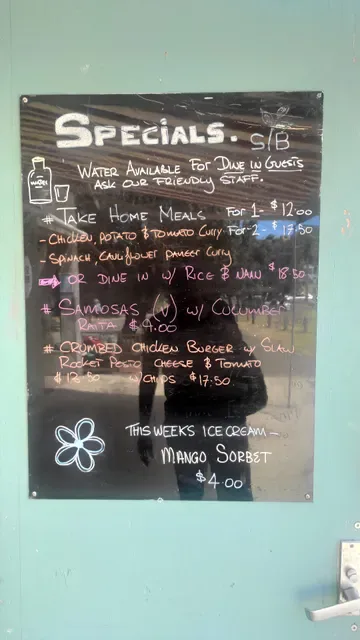 SPECIALS. S/B
WATER AVAILABLE FOR DINE IN GUESTS
ASK OUR FRIENDLY STAFF.
WATER
# TAKE HOME MEALS FOR 1- $12.00
- CHICKEN, POTATO & TOMATO CURRY FOR 2- $17.50
- SPINACH, CAULIFLOWER PANEER CURRY
OR DINE IN W/ RICE & NAAN $18.50
# SAMOSAS (V) W/ CUCUMBER
RAITA $4.00
# CRUMBED CHICKEN BURGER W/ SLAW
ROCKET PESTO CHEESE & TOMATO
$13.50 W/CHIPS $17.50
THIS WEEKS ICE CREAM -
MANGO SORBET
$4.00